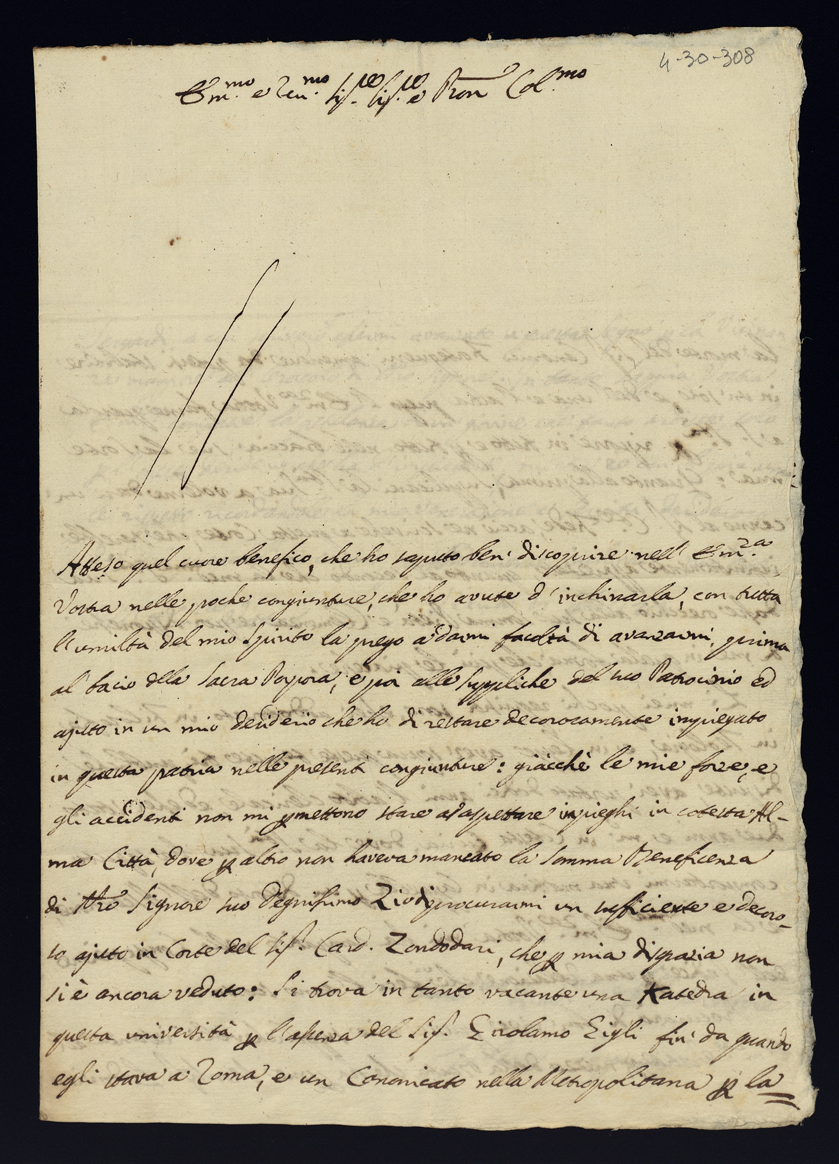 4-30-308
Em.mo e Rev.mo Sig.re Sig.re e Pron Col.mo
Atteso quel cuore benefico, che ho saputo ben' discoprire nell' Em.za
Vostra nelle poche congiunture, che ho avute d' inchinarla, con tutta
l'umiltà del mio Spirito la prego a darmi facoltà di avanzarmi, prima
al bacio della Sacra Porpora, e poi alle suppliche del suo Patrocinio ed
ajuto in un mio desiderio che ho di restare decorosamente impiegato
in questa patria nelle presenti congiunture: giàcchè le mie forze, e
gli accidenti non mi pmettono stare ad aspettare impieghi in cotesta Al-
ma Città, dove p altro non haveva mancato la Somma Beneficenza
di Nro Signore suo Degnissimo Zio di procurarmi un sufficiente e decoro-
so ajuto in Corte del Sig. Card. Zondodari, che p mia disgrazia non
si è ancora veduto: Si trova in tanto vacante una Katedra in
questa università p l'assenza del Sig. Girolamo Gigli fin' da quando
egli stava a Roma, e un Canonicato nella Metropolitana p la